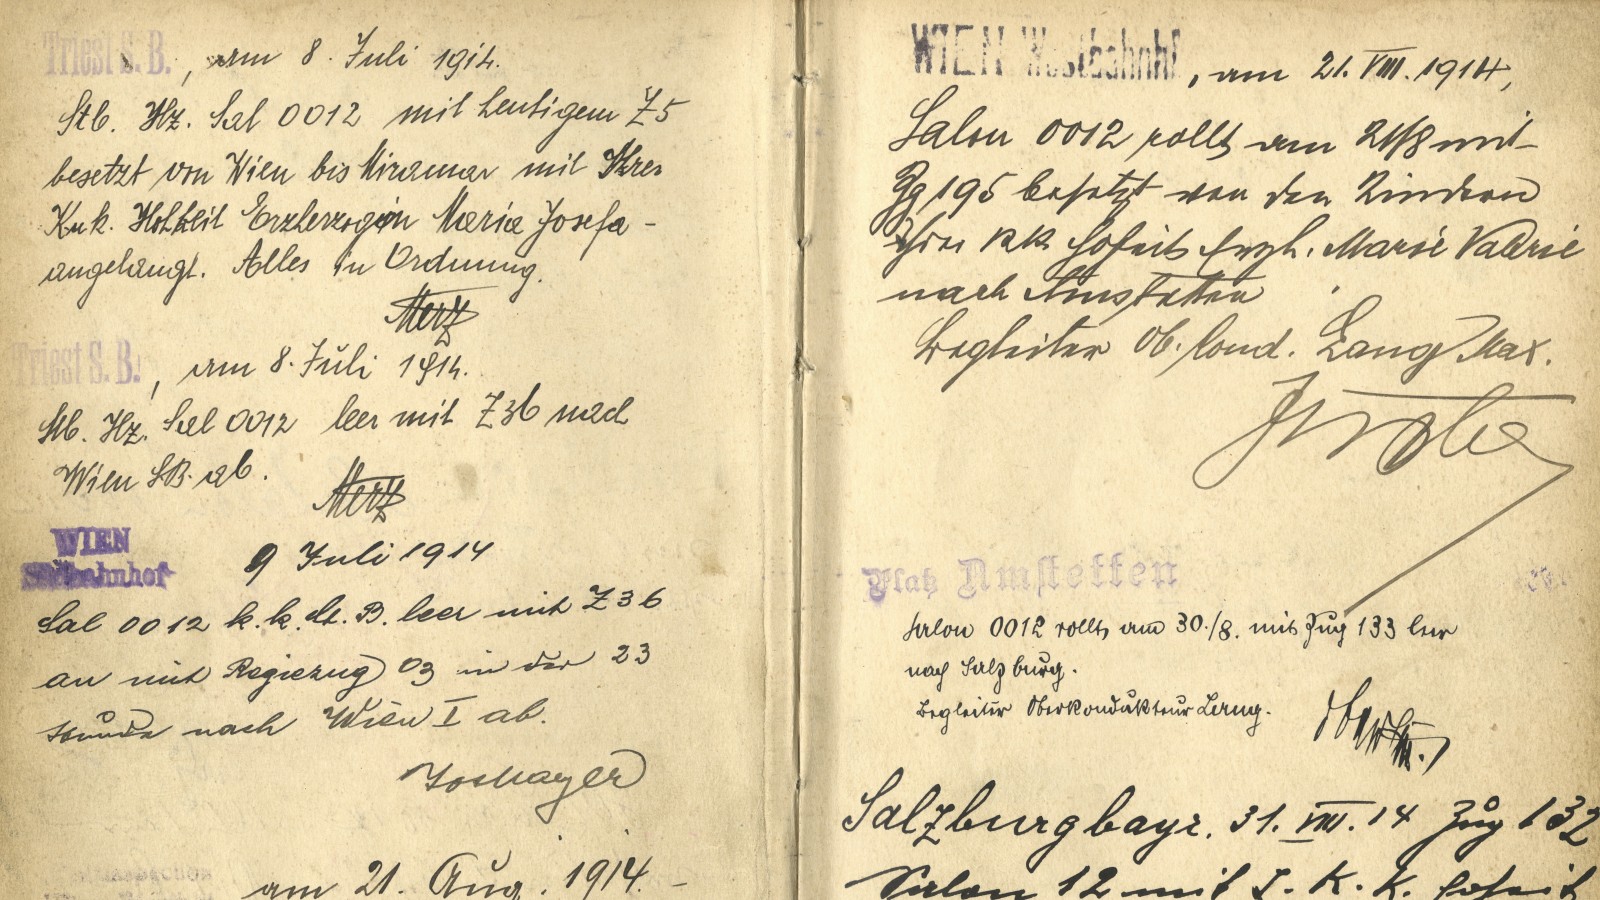 Triest S. B., am 8. Juli 1914.
Stb. Hz. Sal 0012 mit heutigem Z 5
besetzt von Wien bis Miramar mit Ihrer
K u k. Hohheit Erzherzogin Maria Josefa -
angelangt. Alles in Ordnung.
Merz
Triest S. B., am 8. Juli 1914.
Stb. Hz. Sal 0012 leer mit Z 36 nach
Wien SB. ab.
Merz
WIEN
Südbahnhof
9 Juli 1914
Sal 0012 k. k. St. B. leer mit Z 36
an mit Regiezug 03 in der 23
Stunde nach Wien I ab.
am 21. Aug. 1914. -
WIEN Westbahnhf, am 21. VIII. 1914,
Salon 0012 rollt am 21/8 mit
Zg 195 besetzt von den Kindern
Ihrer kk Hoheit Erzh. Marie Valerie
nach Amstetten
Begleiter Ob. Cond. Lang Max.
Platz Amstetten
Salon 0012 rollt am 30./8. mit Zug 133 leer
nach Salzburg.
Begleiter Oberkondukteur
Salzburg bayr. 31. VIII. 14 Zug 132
Salon 12 mit I. K. K. Hoheit